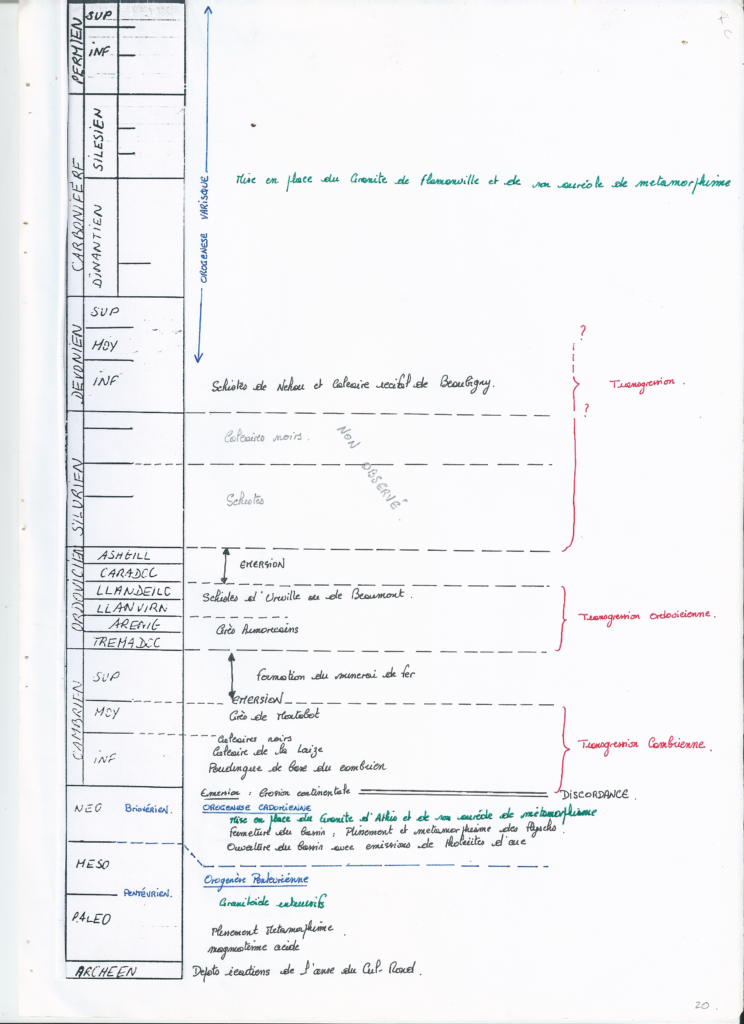 PERMIEN
SUP
INF
CARBONIFERE
SILESIEN
DINANTIEN
OROGENESE VARISQUE
Mise en place du Granite de Flamanville et de son auréole de metamorphisme
DEVONIEN
SUP
MOY
INF
Schistes de Nehou et Calcaire recifal de Beaubigny.
?
?
Transgression.
SILURIEN
Calcaires noirs.
Schistes
NON OBSERVÉ
ORDOVICIEN
ASHGILL
CARADOC
EMERSION
LLANDEILO
Schistes d'Urville ou de Beaumont.
LLANVIRN
Transgression Ordovicienne.
ARENIG
Grès Armoricains
TREMADOC
CAMBRIEN
SUP
Formation du minerai de fer
EMERSION
MOY
Grès de Montabot
Calcaires noirs
INF
Calcaire de la Laize
Poudingue de base du cambrien
Transgression Cambrienne.
Emersion : Erosion continentale
DISCORDANCE.
NEO Briovérien.
OROGENESE CADOMIENNE
Mise en place du Granite d'Athis et de son auréole de métamorphisme
Fermeture du bassin ; Plissement et metamorphisme des Flyschs.
Ouverture du bassin avec emissions de tholeiites d'arc
MESO
Orogenèse Pentevrienne
PENTÉVRIEN.
Granitoïde intrusifs
PALEO
Plissement Metamorphisme.
magmatisme acide
ARCHEEN
Depots icartiens de l'anse du Cul-Rond.
20